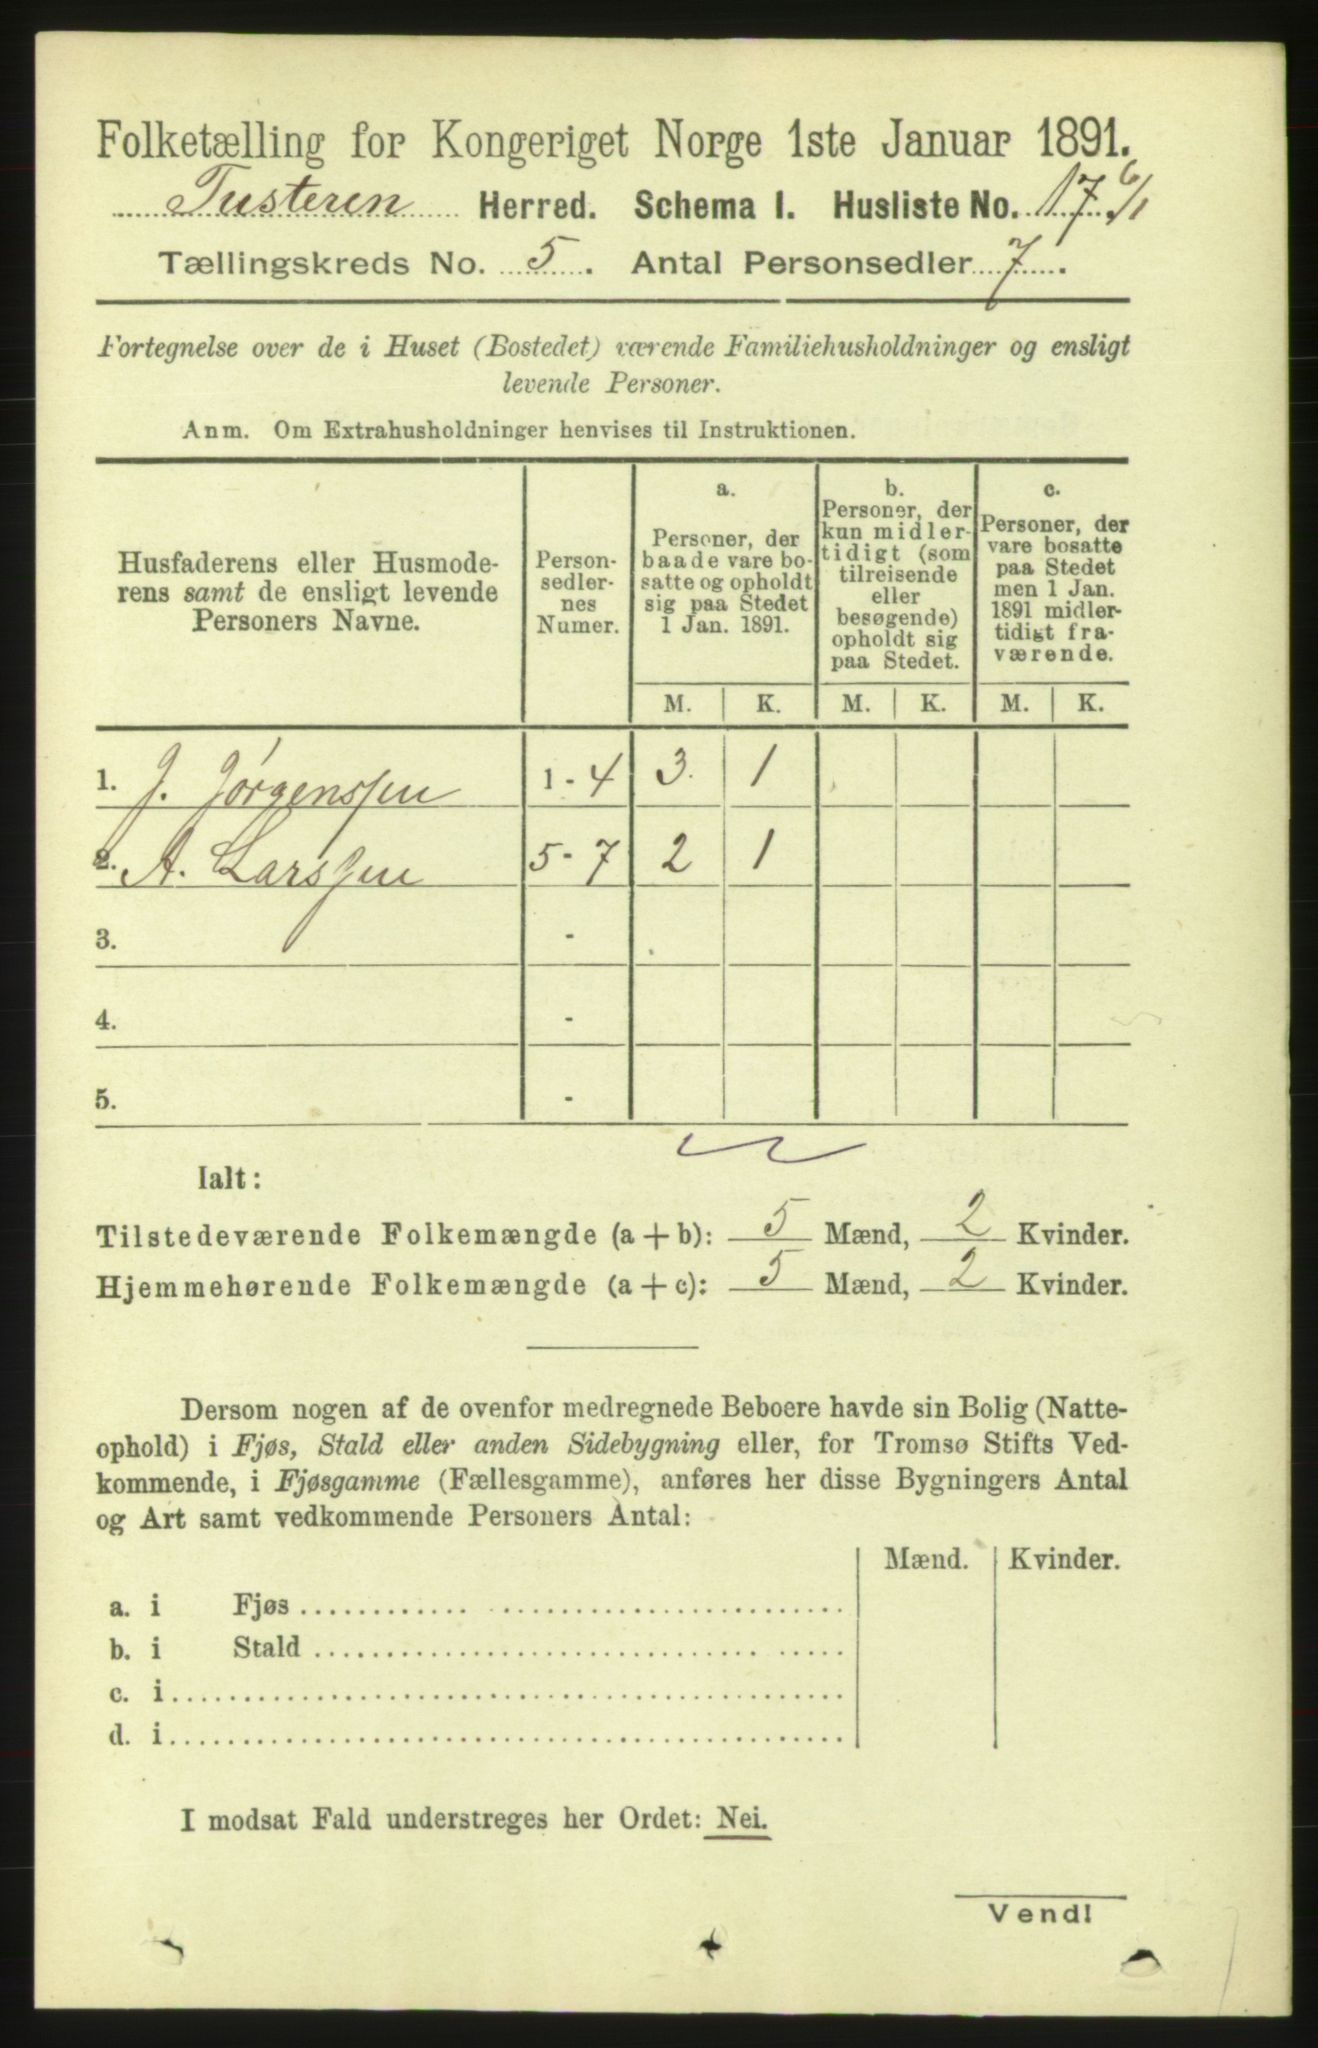 Folketælling for Kongeriget Norge 1ste Januar 1891.
Tusteren Herred. Schema I. Husliste No. 17 6/1
Tællingskreds No. 5. Antal Personsedler 7.
Fortegnelse over de i Huset (Bostedet) værende Familiehusholdninger og ensligt
levende Personer.
Anm. Om Extrahusholdninger henvises til Instruktionen.
Husfaderens eller Husmode-
rens samt de ensligt levende
Personers Navne.
Person-
sedler-
nes
Numer.
a.
Personer, der
baade vare bo-
satte og opholdt
sig paa Stedet
1 Jan. 1891.
b.
Personer, der
kun midler-
tidigt (som
tilreisende
eller
besøgende)
opholdt sig
paa Stedet.
c.
Personer, der
vare bosatte
paa Stedet
men 1 Jan.
1891 midler-
tidigt fra-
værende.
M. K. M. K. M. K.
1. J. Jørgenssen 1 - 4 3. 1
2. A. Larssen 5 - 7 2 1
3. -
4. -
5. -
Ialt:
Tilstedeværende Folkemængde (a + b): 5 Mænd, 2 Kvinder.
Hjemmehørende Folkemængde (a + c): 5 Mænd, 2 Kvinder.
Dersom nogen af de ovenfor medregnede Beboere havde sin Bolig (Natte-
ophold) i Fjøs, Stald eller anden Sidebygning eller, for Tromsø Stifts Ved-
kommende, i Fjøsgamme (Fællesgamme), anføres her disse Bygningers Antal
og Art samt vedkommende Personers Antal:
Mænd. Kvinder.
a. i Fjøs
b. i Stald
c. i
d. i
I modsat Fald understreges her Ordet: Nei.
Vend!